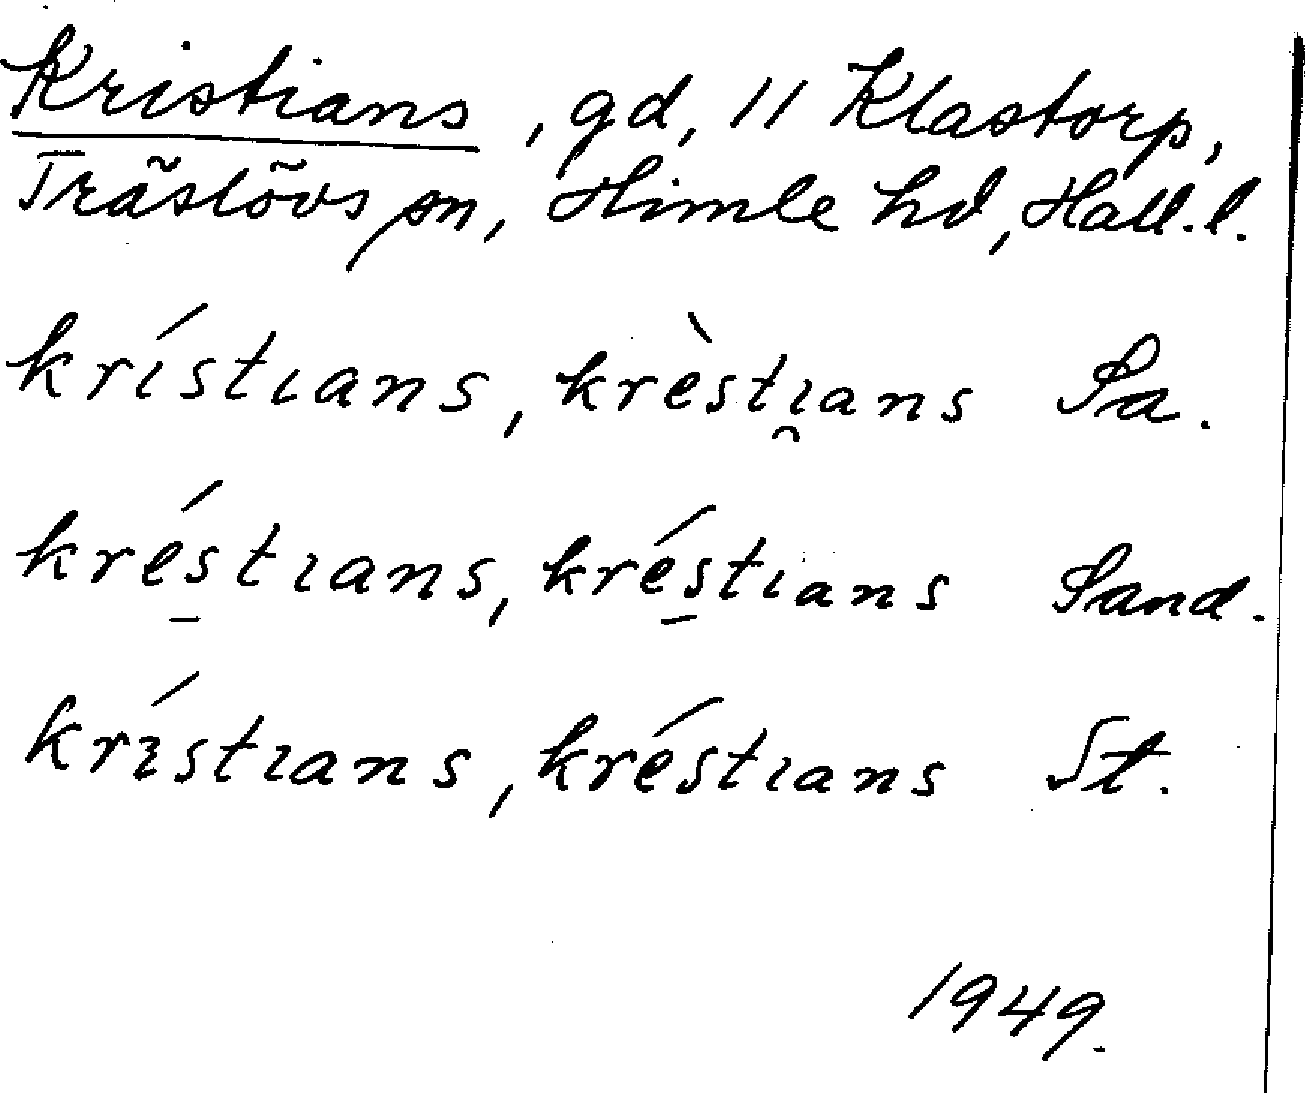 Kristians, gd, 11 Klastorp,
Träslövs sn, Himle hd, Hall. l.
krı́stıans, krèstı̯ans Sa.
krés̱tıans, krés̱tıans Sand.
krı́stıans, kréstıans St.
1949.